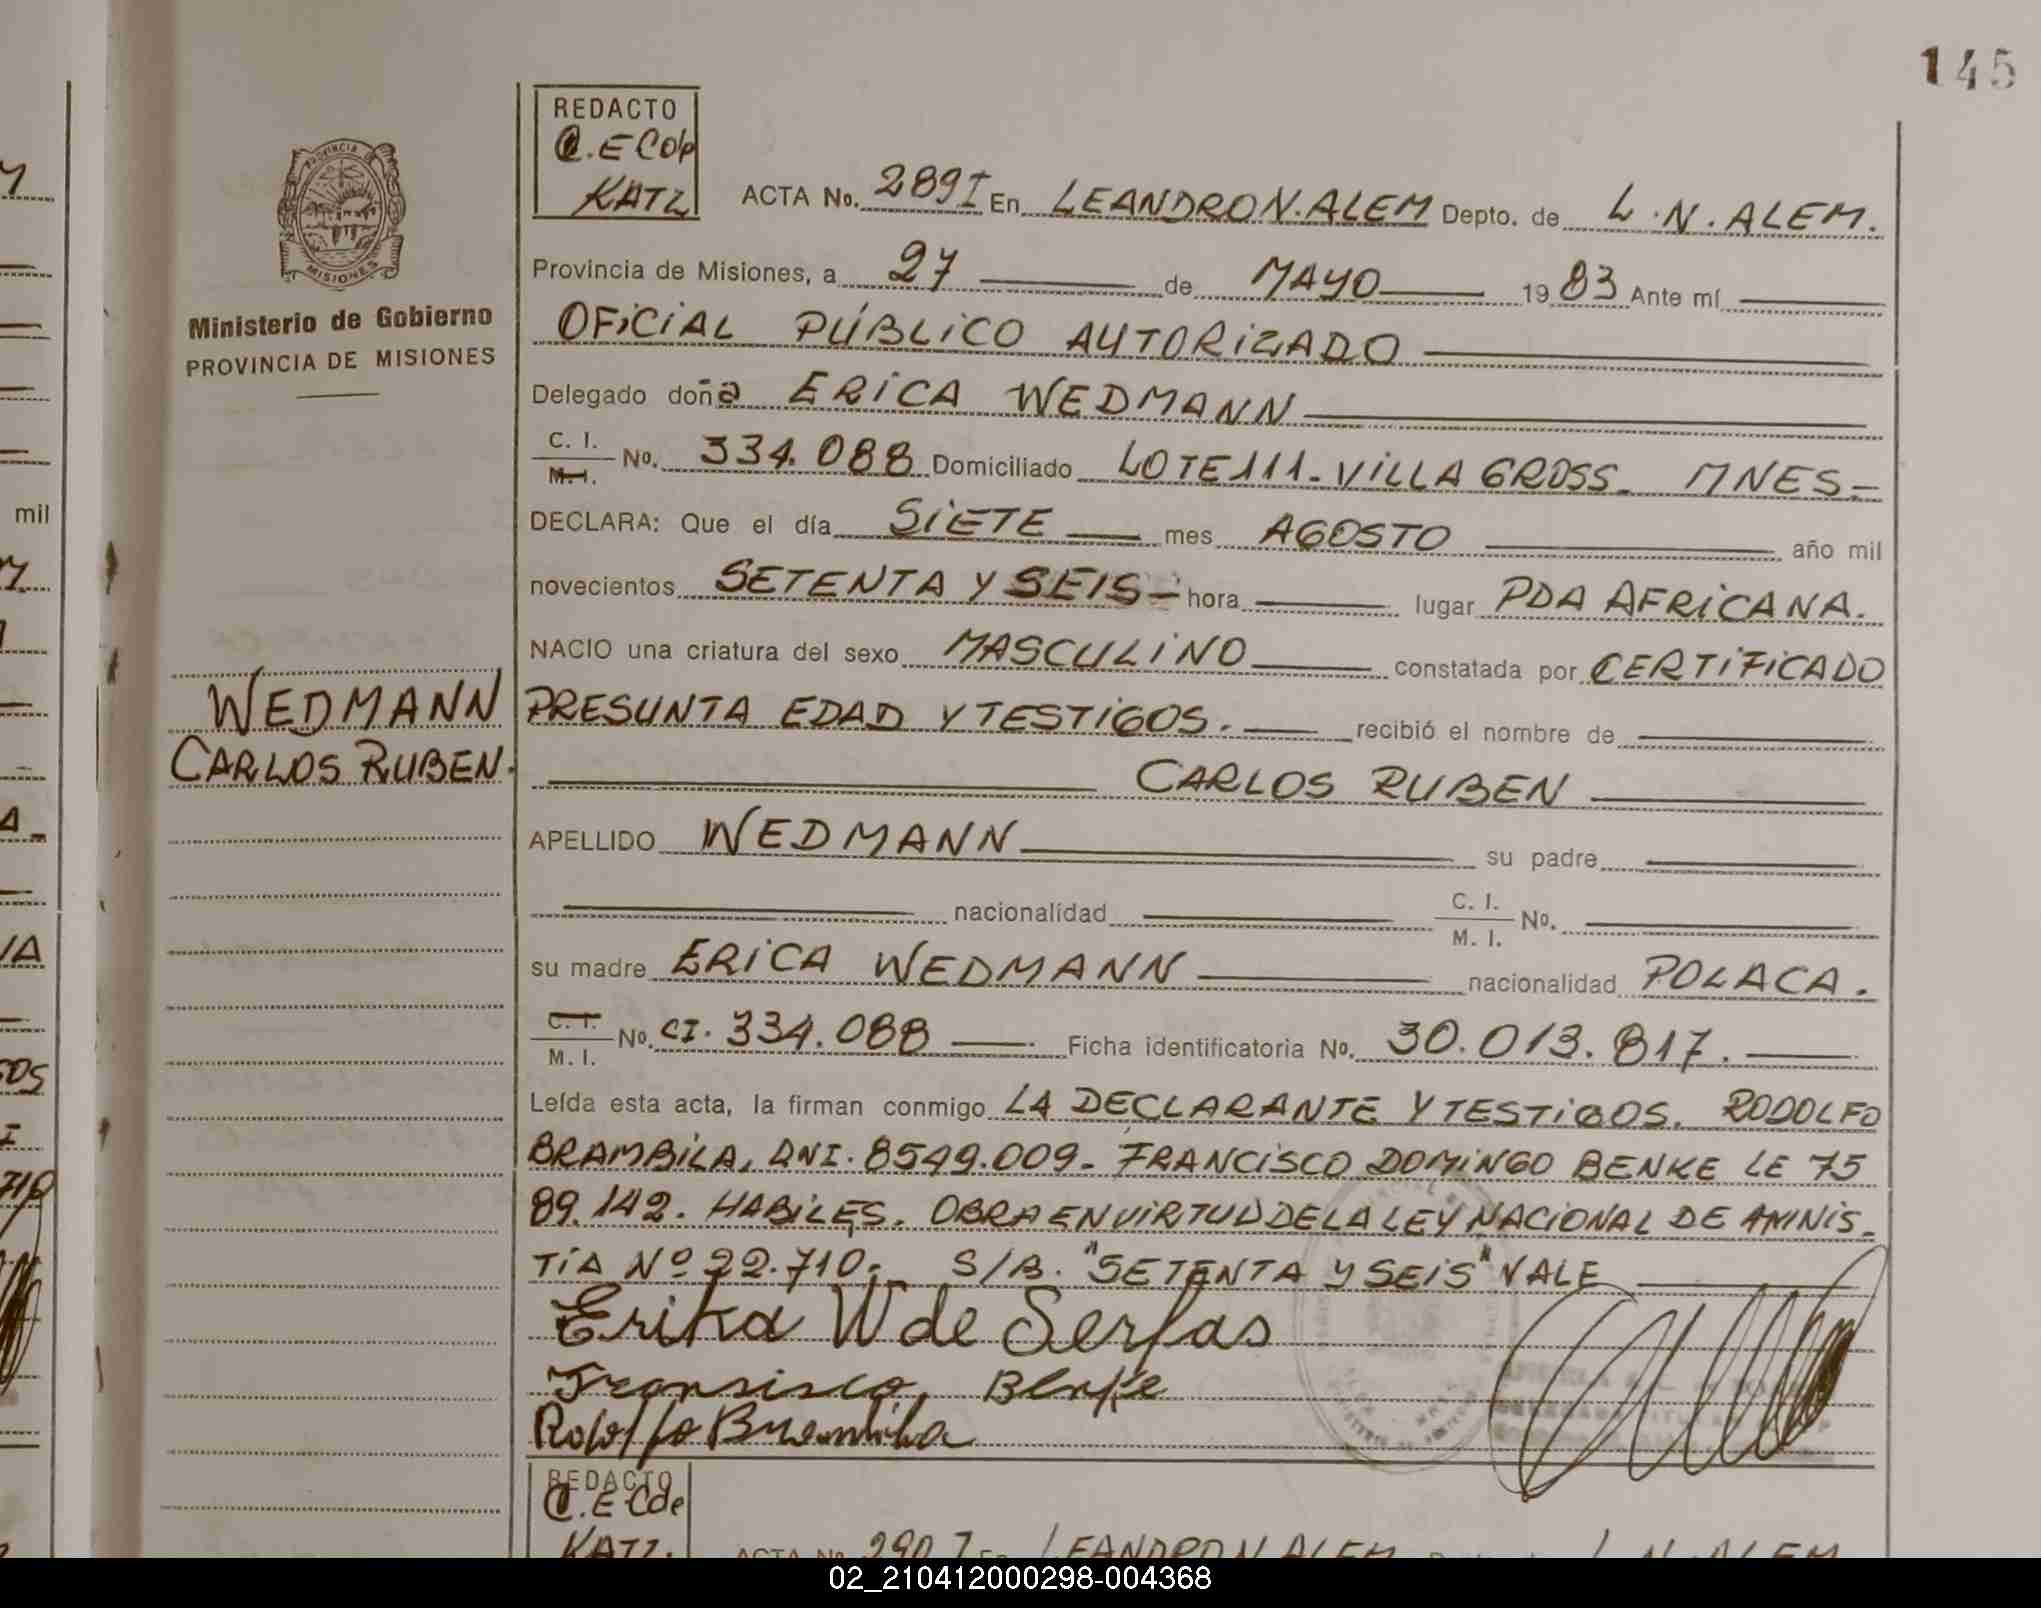 145
REDACTO
C.E Cde
KATZ
ACTA No. 289 I En LEANDRO N. ALEM Depto. de L. N. ALEM.
Provincia de Misiones, a 27 de MAYO 1983 Ante mí
OFICIAL PÚBLICO AUTORIZADO
Delegado doña ERICA WEDMANN
C. I.
M. I. No. 334.088 Domiciliado LOTE 111 - VILLA GROSS - MNES -
DECLARA: Que el día SIETE mes AGOSTO año mil
novecientos SETENTA Y SEIS - hora lugar PDA AFRICANA.
NACIO una criatura del sexo MASCULINO constatada por CERTIFICADO
PRESUNTA EDAD Y TESTIGOS. recibió el nombre de
CARLOS RUBEN
APELLIDO WEDMANN su padre
nacionalidad C. I.
M. I. No.
su madre ERICA WEDMANN nacionalidad POLACA.
C. I.
M. I. No. CI. 334.088 Ficha identificatoria No. 30.013.817.
Leída esta acta, la firman conmigo LA DECLARANTE Y TESTIGOS. RODOLFO
BRAMBILA, DNI. 8549.009 - FRANCISCO DOMINGO BENKE LE 75
89.142. HABILES. OBRA EN VIRTUD DE LA LEY NACIONAL DE AMNIS-
TIA Nº 22.710.- S/B. "SETENTA Y SEIS" VALE
Erika W de Serfas
Fransisco Benke
Rodolfo Brambila
PROVINCIA DE
MISIONES
Ministerio de Gobierno
PROVINCIA DE MISIONES
WEDMANN
CARLOS RUBEN.
mil
REDACTO
C.E Cde
KATZ.
ACTA No. 290 I En LEANDRO N ALEM L. N. ALEM
02_210412000298-004368